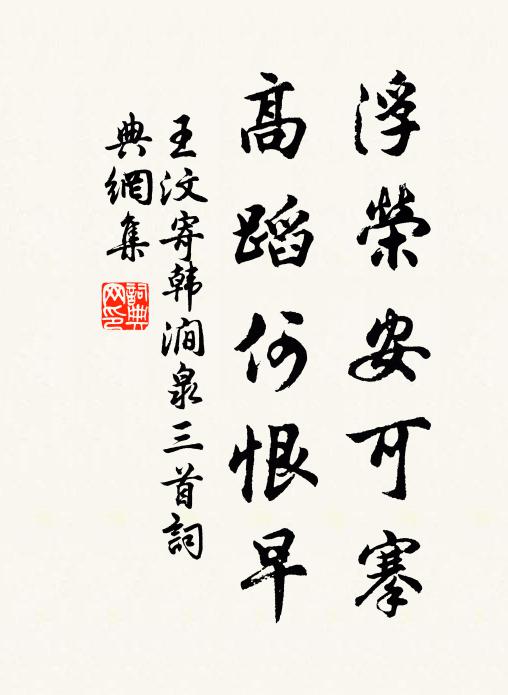 浮榮安可搴
高蹈何恨早
王汶寄韩澗泉三首詞
典網集
詞典网印